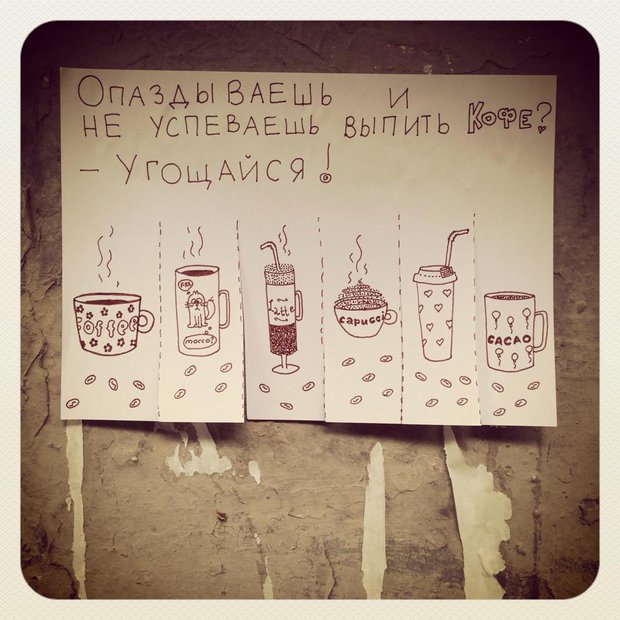 ОПАЗДЫВАЕШЬ И
НЕ УСПЕВАЕШЬ ВЫПИТЬ КОФЕ?
– УГОЩАЙСЯ!
COFFEE
FOR
morro?
Latte
capucci
CACAO